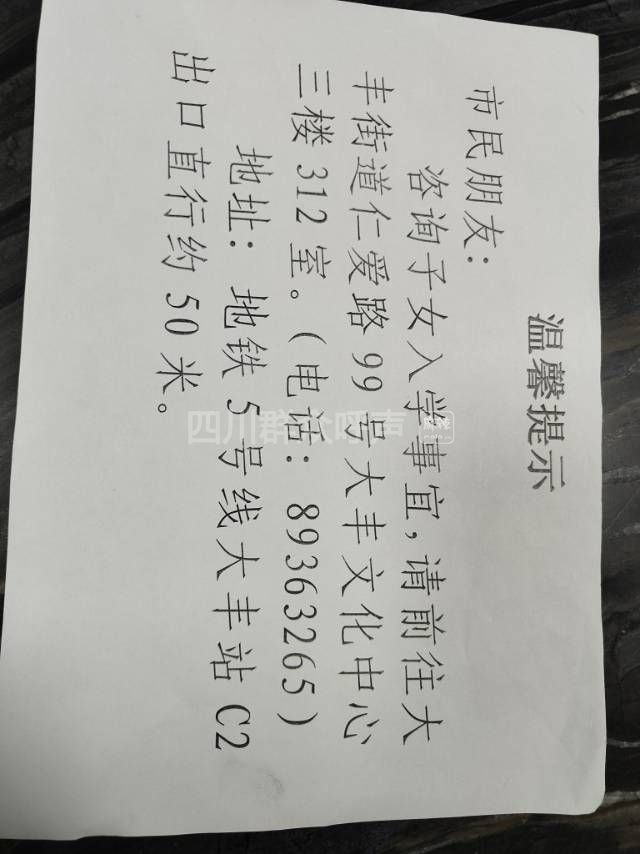 温馨提示
市民朋友：
咨询子女入学事宜，请前往大
丰街道仁爱路99号大丰文化中心
三楼312室。（电话：89363265）
地址：地铁5号线大丰站C2
出口直行约50米。
四川群众呼声